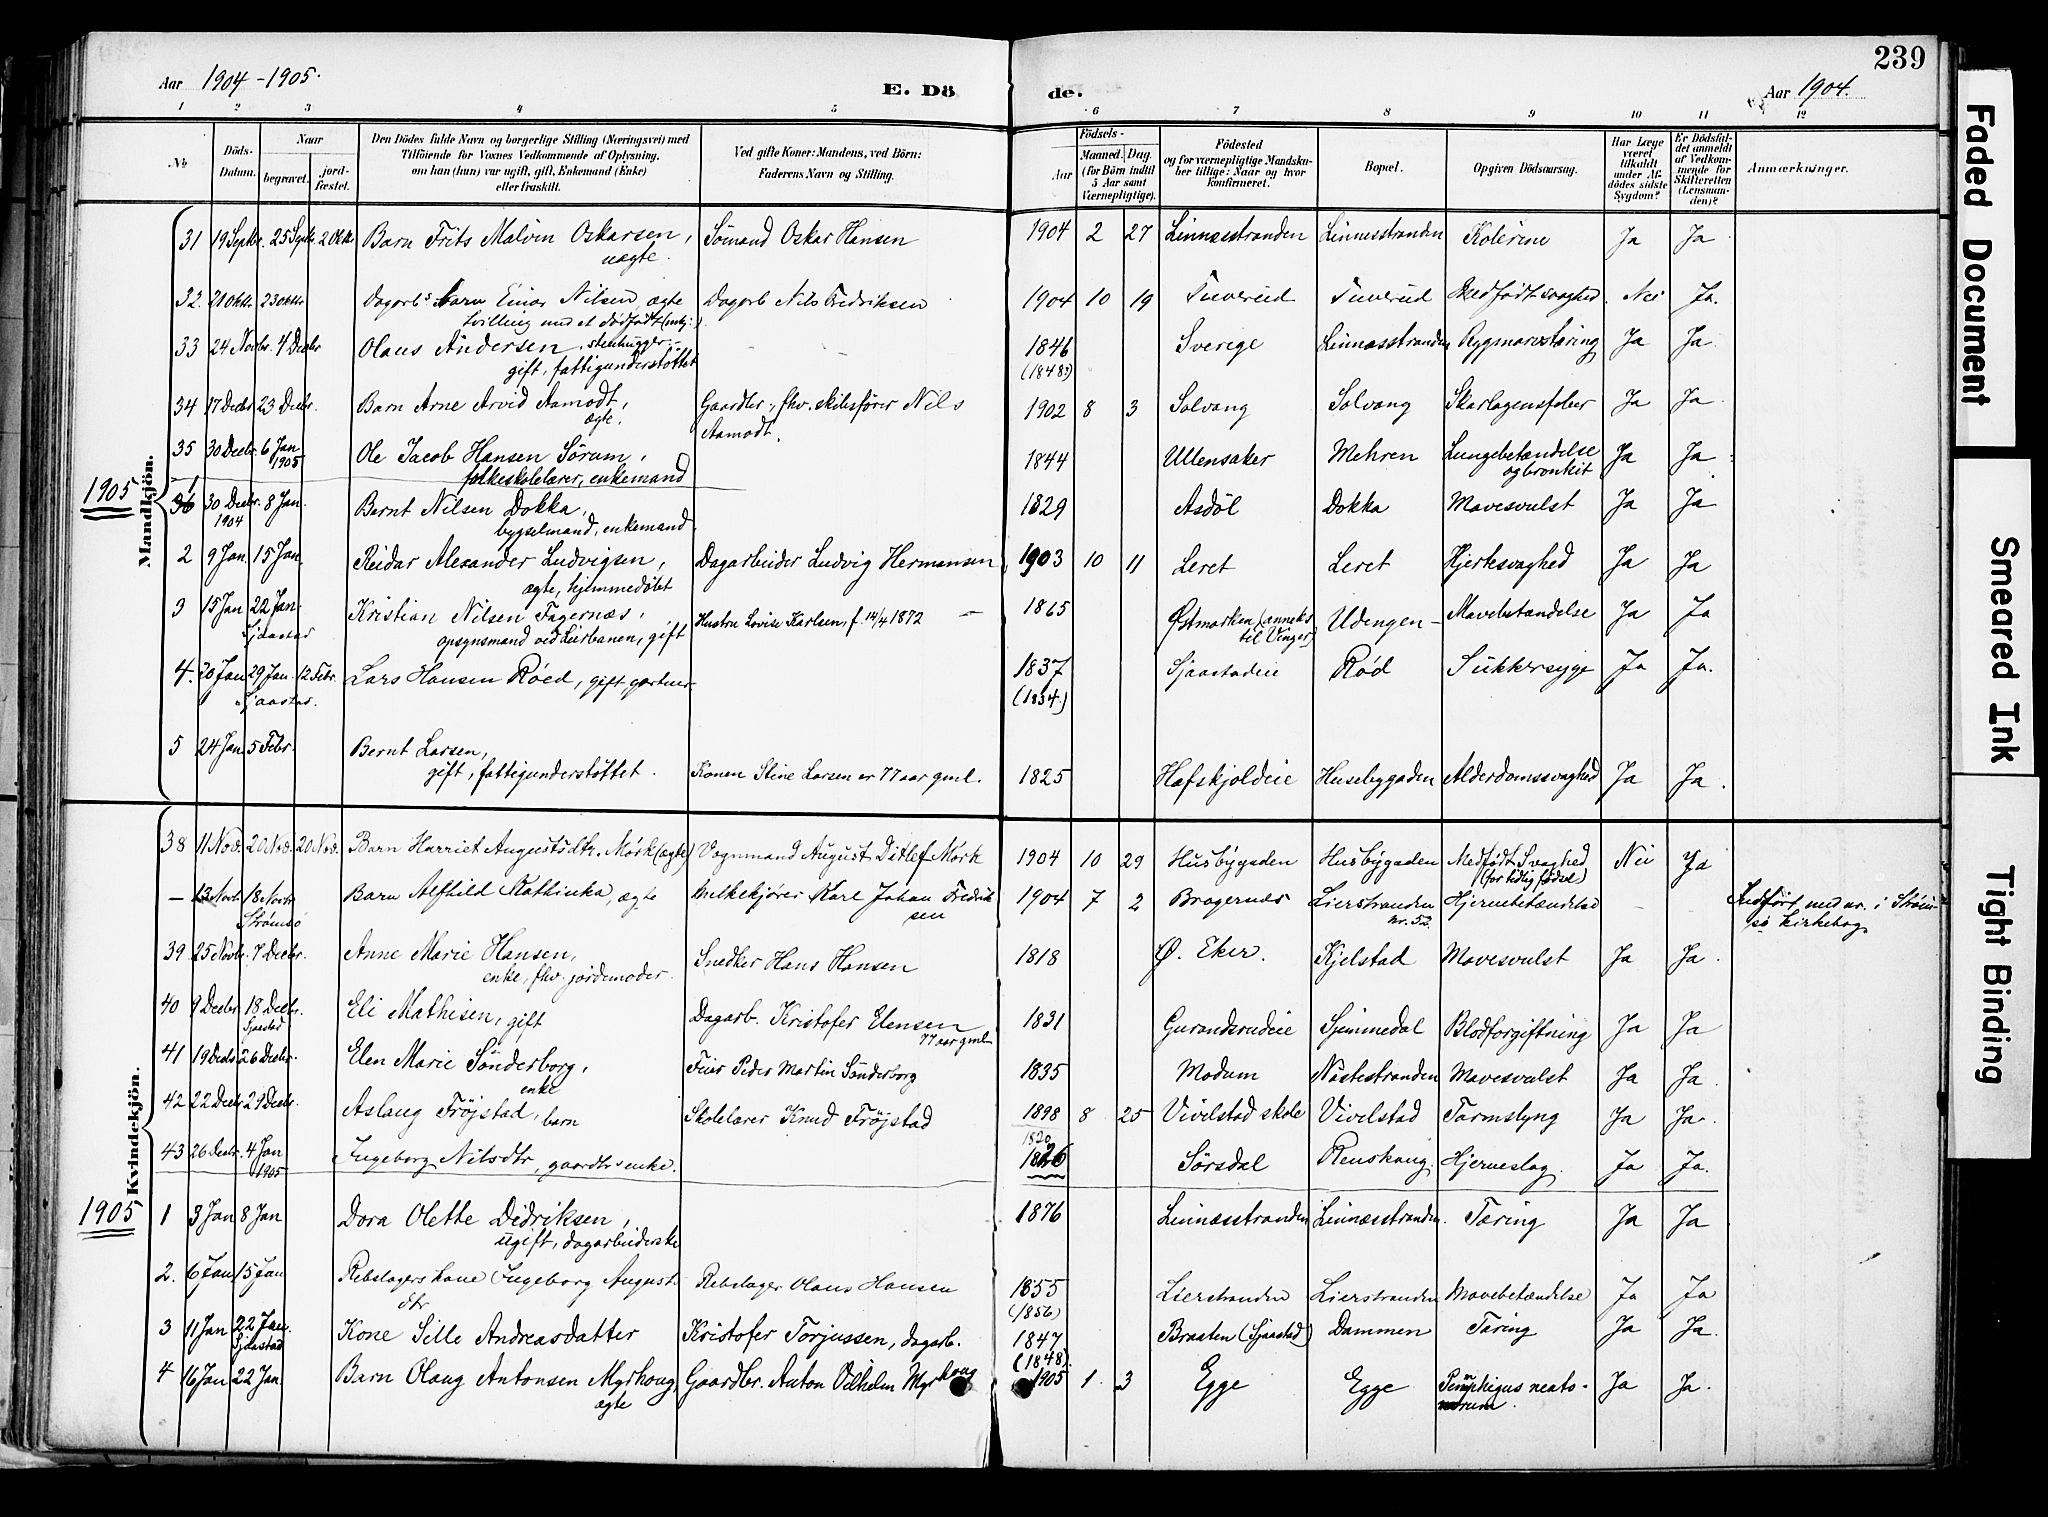 239
Aar 1904-1905.
E. Dö
de.
Aar 1904.
1 2 3 4 5 6 7 8 9 10 11 12
No
Döds-Datum.
Naar
begravet.
jordfæstet.
Den Dödes fulde Navn og borgerlige Stilling (Næringsvei) med
Tilföiende for Voxnes Vedkommende af Oplysning,
om han (hun) var ugift, gift, Enkemand (Enke)
eller fraskilt.
Ved gifte Koner: Mandens, ved Börn:
Faderens Navn og Stilling.
Födsels-
Aar
Maaned. Dag.
(for Börn indtil
5 Aar samt
Værnepligtige).
Födested
og for værnepligtige Mandskaber tillige: Naar og hvor
konfirmeret.
Bopæl.
Opgiven Dödsaarsag.
Har Læge
været
tilkaldt
under Afdödes sidste
Sygdom?
Er Dödsfaldet anmeldt
af Vedkommende for
Skifteretten
(Lensmanden)?
Anmærkninger.
Mandkjön.
31 19 Septbr. 25 Septbr. 2 Oktbr. Barn Frits Malvin Oskarsen, Sømand Oskar Hansen 1904 2 27 Linnæsstranden Linnesstranden Kolerine Ja Ja
uægte.
32. 21 Oktbr. 23 Oktbr. Dagarbs barn Einar Nilsen, ægte Dagarb Nils Fredriksen 1904 10 19 Tuverud Tuverud Medfødt svaghed Nei Ja.
tvilling med et dødfødt
33 24 Novbr. 4 Decbr Olaus Andersen, stenhugger, 1846 Sverige Linnæsstranden Rygmarvstæring Ja Ja
gift, fattigunderstøttet (1848?)
34 17 Decbr 23 Decbr. Barn Arne Arvid Aamodt, Gaardbr., fhv. skibsfører Nils 1902 8 3 Solvang Solvang Skarlagensfeber Ja Ja
ægte. Aamodt.
35 30 Decbr. 6 Jan 1905 Ole Jacob Hansen Sørum, 1844 Ullensaker Mehren Lungebetændelse Ja Ja
folkeskolelærer, enkemand og bronkit
1905
1 30 Decbr. 1904 8 Jan. Bernt Nilsen Dokka, 1829 Asdøl Dokka Mavesvulst Ja Ja
bygselmand, enkemand.
2 9 Jan. 15 Jan Reidar Alexander Ludvigsen, Dagarbeider Ludvig Hermansen 1903 10 11 Leret Leret Hjertesvaghed Ja Ja
ægte, hjemmedøbt
3 15 Jan 22 Jan Kristian Nilsen Fagernæs, Hustru Lovise Karlsen, f. 14/4 1872 — 1865 Østmarken (anneks Udengen – Mavebetændelse Ja Ja
opsynsmand ved Lierbanen, gift til Vinger)
4. 20 Jan 29 Jan. 12 Febr. Lars Hansen Røed, gift, gartner 1837 Sjaastadeie Rød Sukkersyge Ja Ja.
Sjaastad. (1834.)
5 24 Jan. 5 Febr. Bernt Larsen,
gift, fattigunderstøttet. Konen Stine Larsen er 77 aar gml. 1825 Hafskjoldeie Husebygaden Alderdomssvaghed Ja Ja.
Kvindekjön.
38 11 Nov. 20 Nov. 20 Nov. Barn Harriet Augustsdtr. Mørk (ægte) Vognmand August Ditlef Mørk 1904 10 29 Husbygaden Husbygaden Medfødt Svaghed Nei Ja
(for tidlig fødsel)
– 13 Novbr 18 Novbr Barn Alfhild Kathinka, ægte Melkekjører Karl Johan Fredriksen 1904 7 2 Bragernæs Lierstranden Hjernebetændelse – – Indført med nr. i Strømsø kirkebog
Strømsø nr. 52.
39 25 Novbr. 7 Decbr. Anne Marie Hansen, Snedker Hans Hansen 1818 Ø. Eker. Kjelstad Mavesvulst Ja Ja.
enke, fhv. jordemoder.
40 9 Decbr 18 Decbr. Eli Mathisen, gift Dagarb. Kristofer Elensen 1831 Guranderudeie Sjemmedal Blodforgiftning Ja Ja
Sjaastad 77 aar gml
41 19 Decbr 26 Decbr. Elen Marie Sønderborg, Feier Peder Martin Sønderborg 1835 Modum Nøstestranden Mavesvulst Ja Ja.
enke
42 22 Decbr 29 Decbr. Aslaug Frøjstad, barn Skolelærer Knud Frøjstad 1898 8 25 Vivelstad skole Vivelstad Tarmslyng Ja Ja.
43 26 Decbr. 4 Jan 1905 Ingeborg Nilsdtr, gaardbrs enke. 1820 1826 Sørsdal Renskaug Hjerneslag. Ja Ja.
1905
1 3 Jan 8 Jan Dora Olette Didriksen, 1876 Linnæsstranden Linnæsstranden. Tæring Ja Ja
ugift, dagarbeiderske
2. 6 Jan. 15 Jan Rebslagers kone Ingeborg Augustdtr Rebslager Olaus Hansen 1855 Lierstranden Lierstranden Mavebetændelse Ja Ja
(1856)
3 11 Jan 22 Jan. Kone Sille Andreasdatter Kristofer Torjussen, dagarb. 1847 Braaten (Sjaastad) Dammen Tæring Ja Ja.
Sjaastad (1848).
4 16 Jan 22 Jan Barn Olaug Antonsen Myrhaug, Gaardbr. Anton Vilhelm Myrhaug 1905 1 3 Egge Egge Pemphigus neatonorum. Ja Ja.
ægte
Faded Document
Smeared Ink
Tight Binding